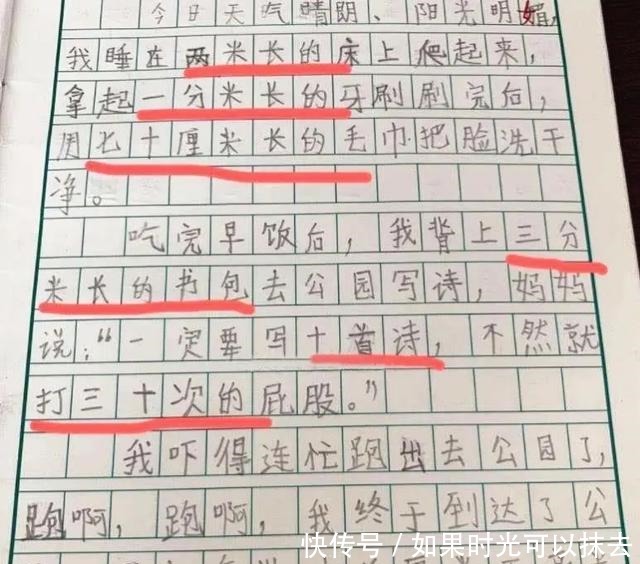 今日天气晴朗、阳光明媚,
我睡在两米长的床上爬起来,
拿起一分米长的牙刷刷完后,
用七十厘米长的毛巾把脸洗干
净。
吃完早饭后,我背上三分
米长的书包去公园写诗,妈妈
说:“一定要写十首诗,不然就
打三十次的屁股。”
我吓得连忙跑出去公园了,
跑啊,跑啊,我终于到达了公
快传号/如果时光可以抹去